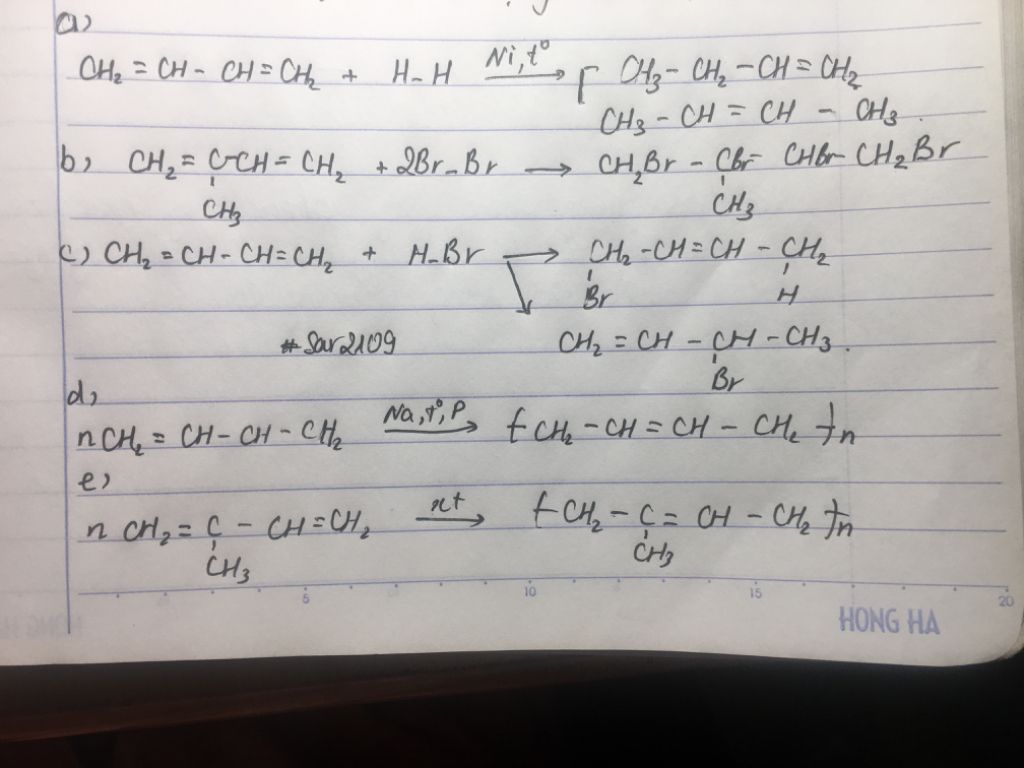 a)
CH₂ = CH - CH = CH₂ + H - H Ni, t° → CH₃ - CH₂ - CH = CH₂
CH₃ - CH = CH - CH₃.
b) CH₂ = C - CH = CH₂ + 2Br - Br → CH₂Br - CBr - CHBr - CH₂Br
CH₃ CH₃
c) CH₂ = CH - CH = CH₂ + H - Br → CH₂ - CH = CH - CH₂
Br H
# Sar2109 CH₂ = CH - CH - CH₃.
Br
d)
nCH₂ = CH - CH - CH₂ Na, t°, P → ( CH₂ - CH = CH - CH₂ )n
e)
n CH₂ = C - CH = CH₂ xt → ( CH₂ - C = CH - CH₂ )n
CH₃ CH₃
5 10 15 20
HONG HA